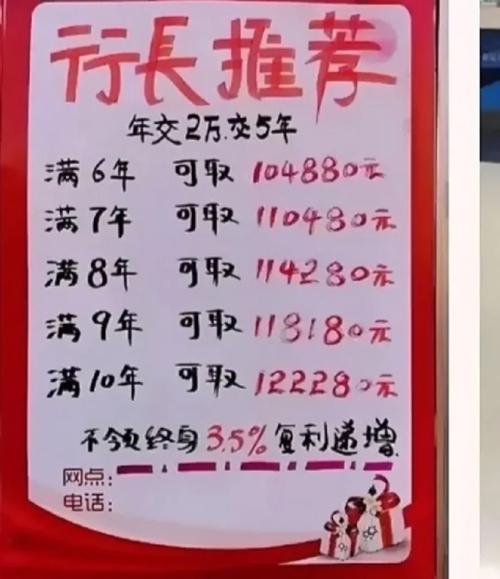 行長推荐
年交2万.交5年
满6年 可取 104880元
满7年 可取 110480元
满8年 可取 114280元
满9年 可取 118180元
满10年 可取 122280元
不领终身3.5%复利递增
网点:
电话: